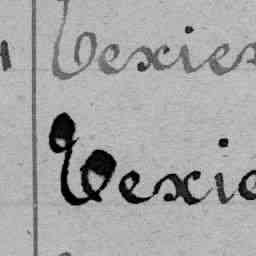 Vexier
Vexie